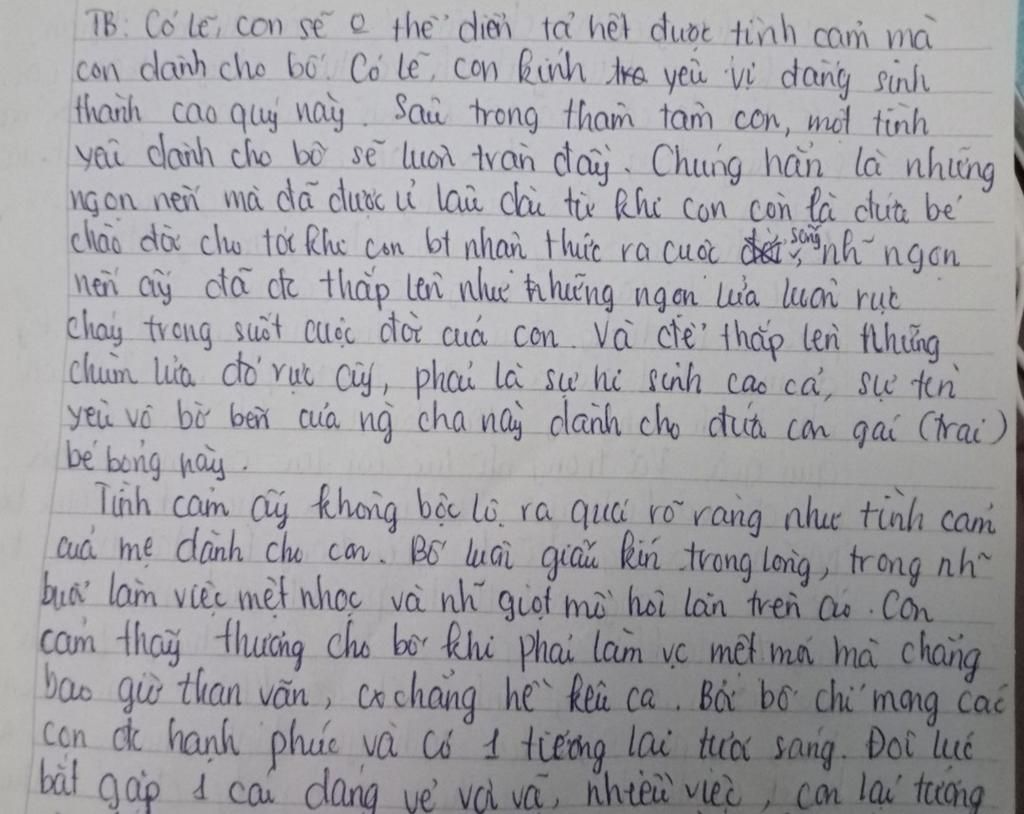 TB: Có lẽ, con sẽ 0 thể diễn tả hết được tình cảm mà
con dành cho bố. Có lẽ, con kính yêu vị đấng sinh
thành cao quý này. Sâu trong thâm tâm con, một tình
yêu dành cho bố sẽ luôn tràn đầy. Chúng hẳn là những
ngọn nến mà đã được ủ lâu dài từ khi con còn là đứa bé
chào đời cho tới khi con bt nhận thức ra cuộc sống, nh~ ngọn
nến ấy đã đc thắp lên như những ngọn lửa luôn rực
cháy trong suốt cuộc đời của con. Và để thắp lên những
chùm lửa đó rực cháy, phải là sự hi sinh cao cả, sự
yêu vô bờ bến của ng cha này dành cho đứa con gái (trai)
bé bỏng này.
Tình cảm ấy không bộc lộ ra quá rõ ràng như tình cảm
của mẹ dành cho con. Bố luôn giấu kín trong lòng, trong nh~
buổi làm việc mệt nhọc và nh~ giọt mồ hôi lăn trên áo. Con
cảm thấy thương cho bố khi phải làm vc mệt mỏi mà chẳng
bao giờ than vãn, chẳng hề kêu ca. Bởi bố chỉ mong các
con đc hạnh phúc và có 1 tương lai tươi sáng. Đôi lúc
bắt gặp 1 cái dáng vẻ vội vã, nhiều việc, con lại tưởng